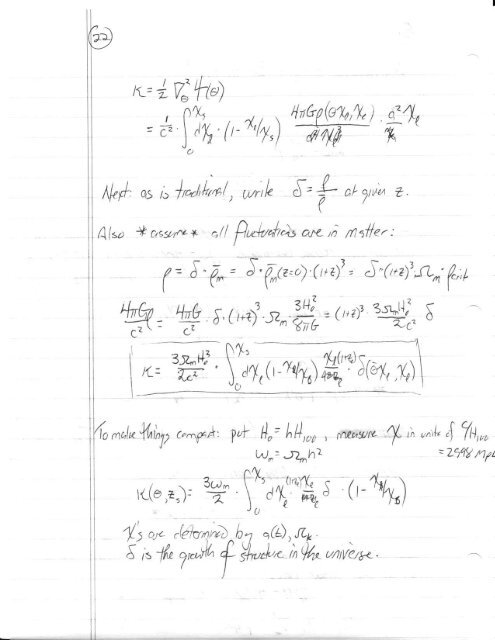 22
κ = ½ ∇²_θ ψ(θ)
= 1/c² · ∫₀^χs dχ_ℓ · (1 - χ_ℓ/χ_s) 4πGρ(θχ_ℓ, χ_ℓ) · a² χ_ℓ
Next: as is traditional, write δ = ρ/ρ̄ at given z.
Also *assume* all fluctuations are in matter:
ρ = δ · ρ̄_m = δ · ρ̄_m(z=0) · (1+z)³ = δ · (1+z)³ · Ω_m · ρcrit
4πGρ/c² = 4πG/c² · δ · (1+z)³ · Ω_m · 3H₀²/8πG = (1+z)³ · 3Ω_m H₀²/2c² δ
κ = 3Ω_m H₀²/2c² · ∫₀^χs dχ_ℓ (1 - χ_ℓ/χ_s) χ_ℓ(1+z_ℓ) · δ(θχ_ℓ, χ_ℓ)
To make things compact: put H₀ = hH₁₀₀, measure χ in units of c/H₁₀₀
ω_m = Ω_m h² = 2998 Mpc
κ(θ, z_s) = 3ω_m/2 · ∫₀^χs dχ_ℓ (1+z_ℓ)χ_ℓ δ · (1 - χ_ℓ/χ_s)
χ's are determined by a(t), Ω_k.
δ is the growth of structure in the universe.